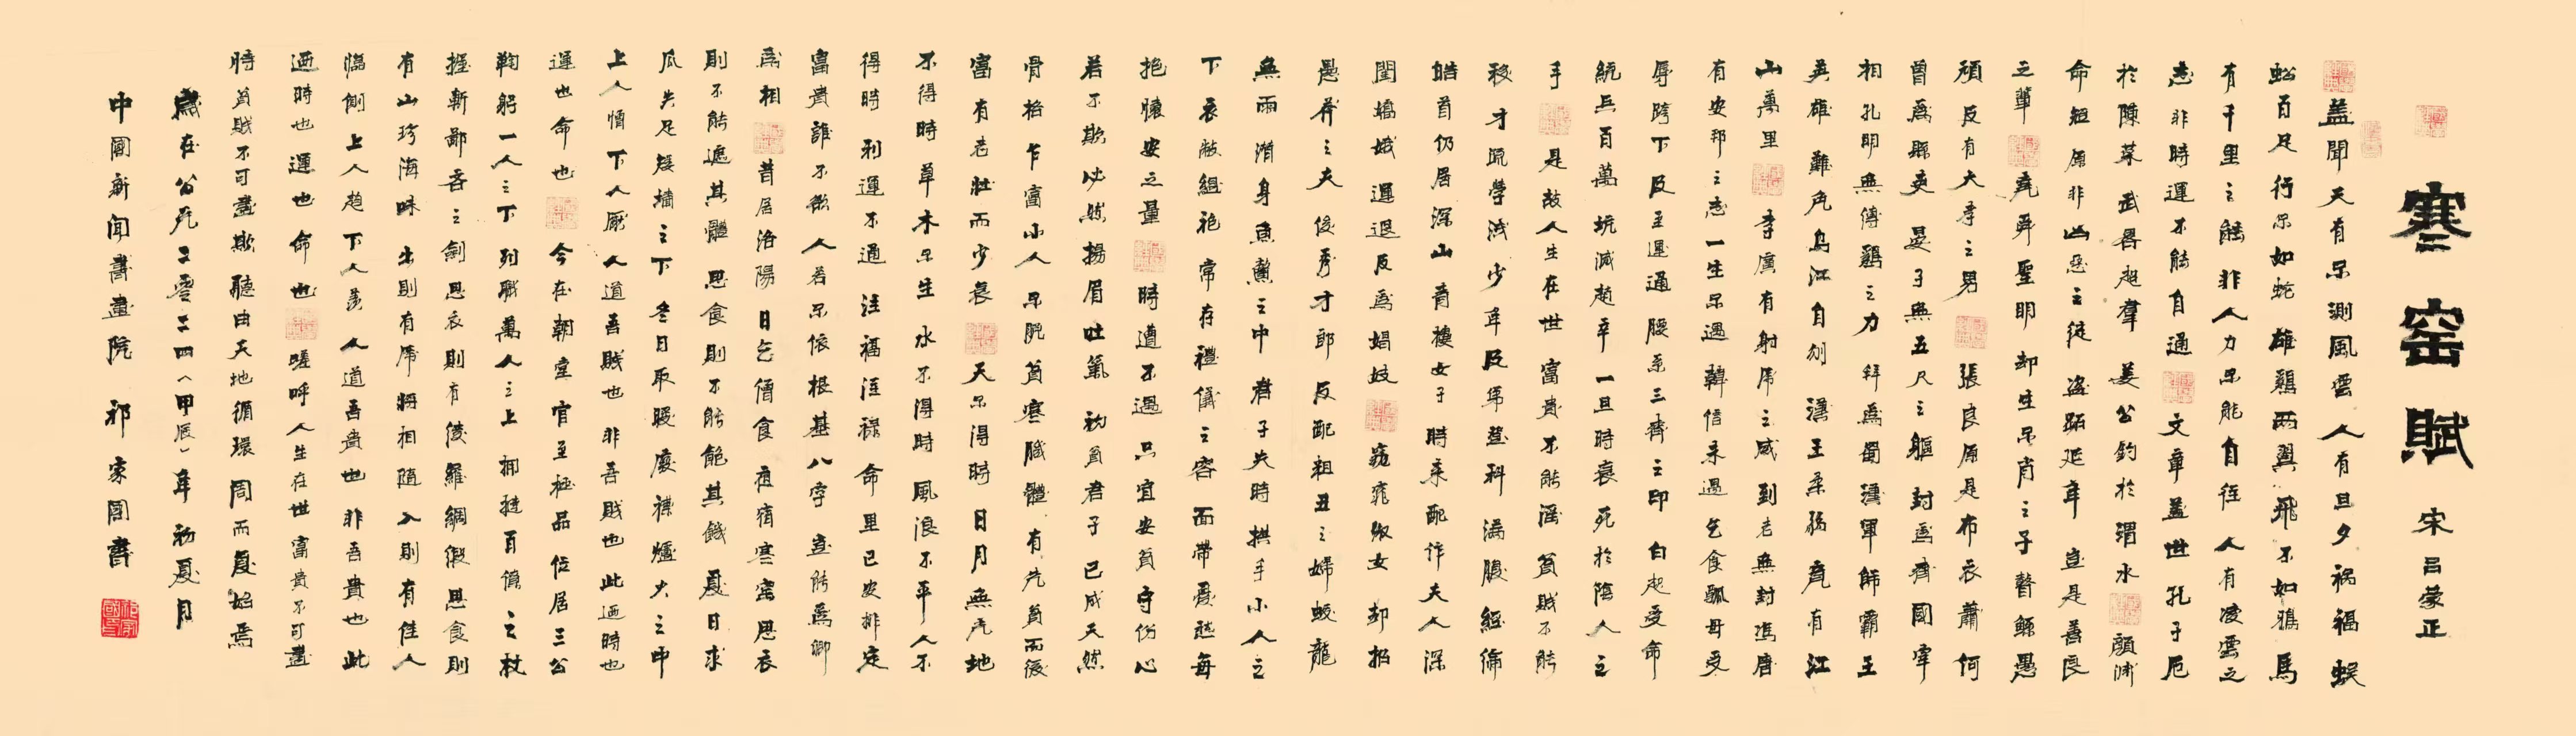 寒窑賦 宋 吕蒙正
盖聞天有不測風雲人有旦夕祸福蜈
蚣百足行不如蛇雄鷄两翼飛不如鴉馬
有千里之能非人力不能自往人有凌雲之
志非時運不能自通文章盖世孔子厄
於陳蔡武畧超羣姜公釣於渭水顔渊
命短原非凶惡之徒盗跖延年豈是善良
之輩堯舜聖明却生不肖之子瞽鯀愚
頑反有大孝之男張良原是布衣蕭何
曽爲縣吏晏子無五尺之軀封爲齊國宰
相孔明無縛鷄之力拜爲蜀漢軍師霸王
英雄難免烏江自刎漢王柔弱竟有江
山萬里李廣有射虎之威到老無封馮唐
有安邦之志一生不遇韓信未遇乞食瓢母受
辱跨下及至運通腰系三齊之印白起受命
統兵百萬坑滅趙卒一旦時衰死於陰人之
手是故人生在世富貴不能淫貧賎不能
移才疏學浅少年及第登科满腹經綸
皓首仍居深山青樓女子時来配作夫人深
閨嬌娥運退反爲娼妓窈窕淑女却招
愚莽之夫俊秀才郎反配粗丑之婦蛟龍
無雨潜身魚鱉之中君子失時拱手小人之
下衣敝組袍常存禮儀之容面帶憂愁每
抱懷安之量時遭不遇只宜安貧守份心
若不欺必然揚眉吐氣初貧君子已成天然
骨格乍富小人不脱貧寒肌體有先貧而後
富有老壮而少衰天不得時日月無光地
不得時草木不生水不得時風浪不平人不
得時利運不通注福注禄命里已安排定
富貴誰不欲人若不依根基八字豈能爲卿
爲相昔居洛陽日乞僧食夜宿寒窑思衣
則不能遮其體思食則不能飽其餓夏日求
瓜失足矮墙之下冬日取暖廢襟爐火之中
上人憎下人厭人道吾賎也非吾賎也此迺時也
運也命也今在朝堂官至極品位居三公
鞠躬一人之下列職萬人之上擁撻百僚之杖
握斬鄙吝之劍思衣則有绫羅綢缎思食則
有山珍海味出則有虎將相隨入則有佳人
臨側上人趋下人羡人道吾貴也非吾貴也此
迺時也運也命也嗟呼人生在世富貴不可盡
時貧賎不可盡欺聽由天地循環周而复始焉
歲在公元二零二四（甲辰）年初夏月
中國新聞書畫院 祁家國書